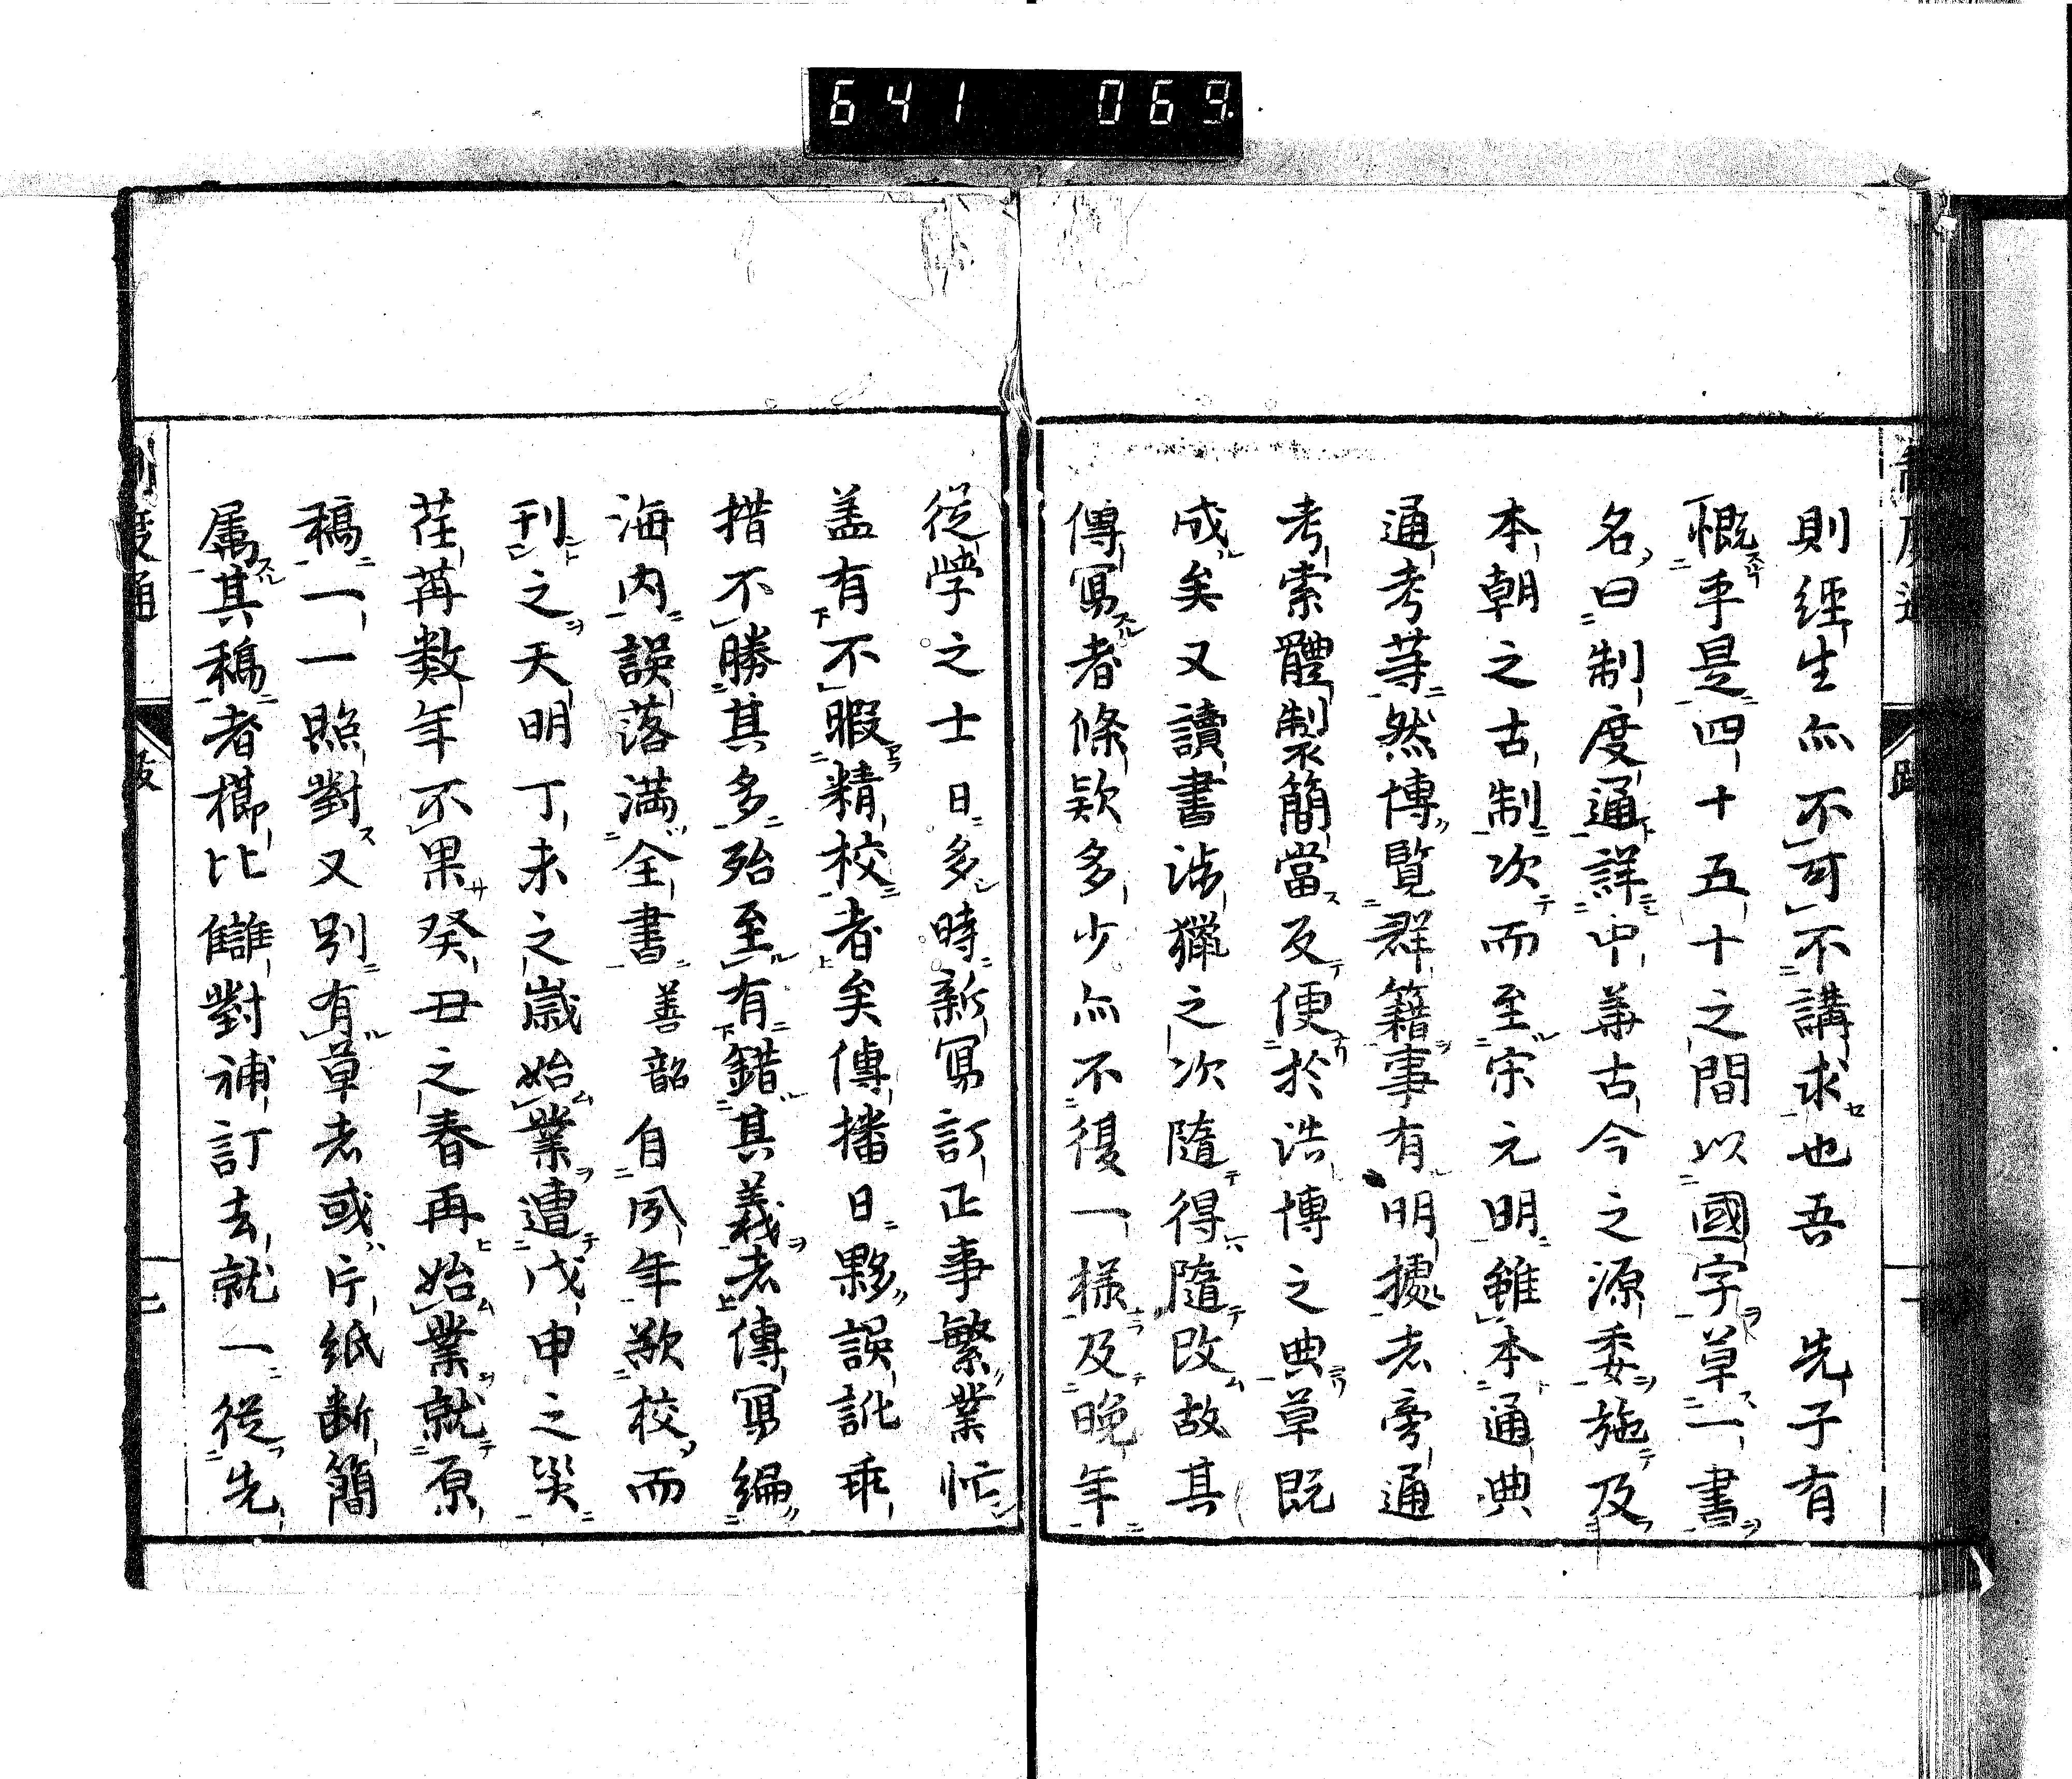 641 069
則經生亦不可不講求也吾 先子有
慨乎是四十五十之間以國字草一書
名曰制度通詳中華古今之源委施及
本朝之古制次而至宋元明雖本通典
通考等然博覽群籍事有明據者旁通
考索體製簡當反便於浩博之典草既
成矣又讀書涉獵之次隨得隨改故其
傳寫者條欵多少亦不復一樣及晩年
從學之士日多時新寫訂正事繁業忙
盖有不暇精校者矣傳播日夥誤訛乖
措不勝其多殆至有錯其義者傳寫編
海内誤落満全書善韶自夙年欲校而
刊之天明丁未之歳始業遭戊申之災
荏苒数年不果癸丑之春再始業就原
稿一一照對又別有草者或片紙斷簡
属其稿者櫛比讎對補訂去就一從先
制度通
跋
二